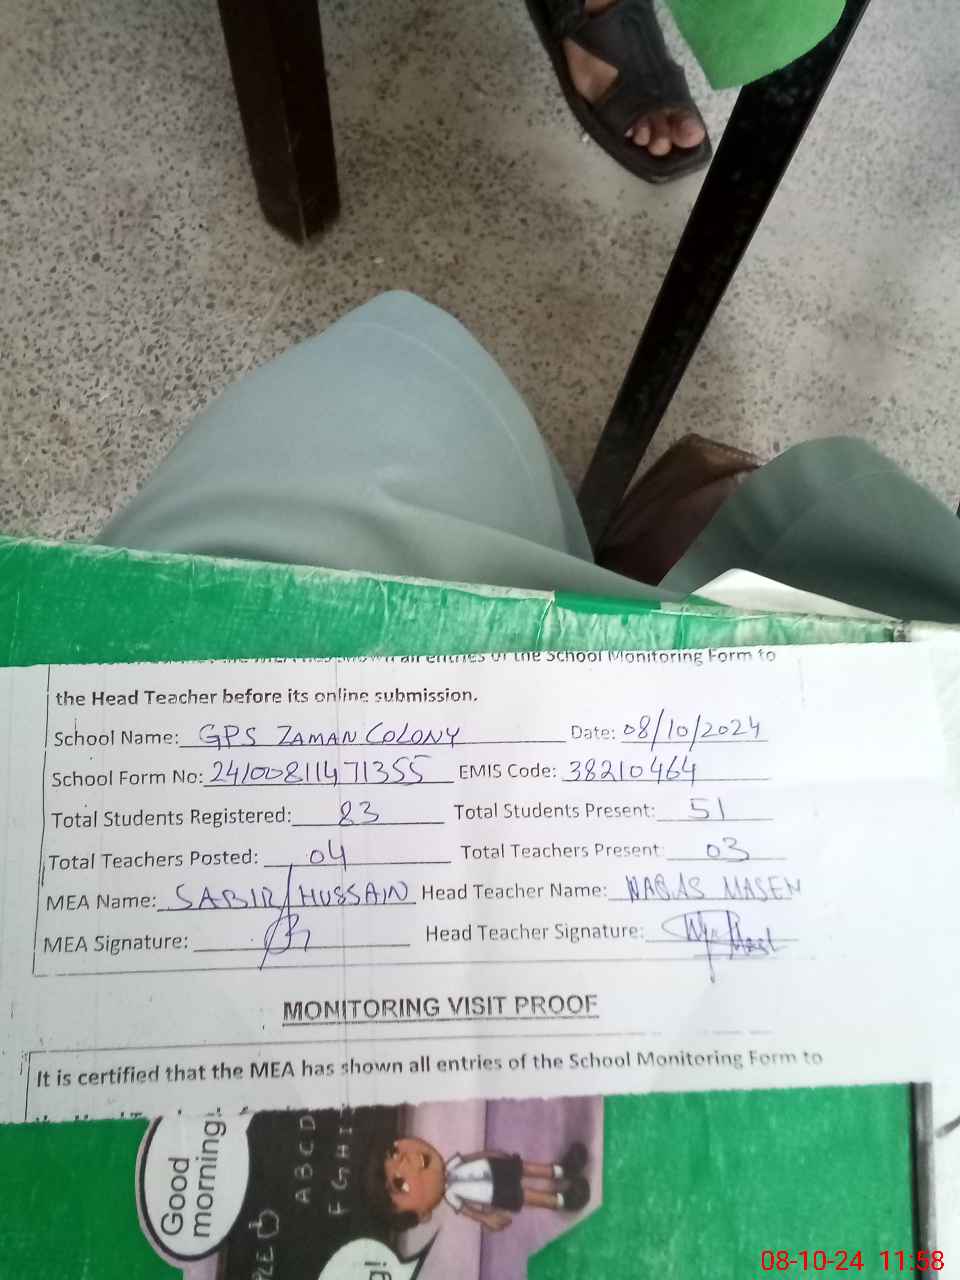 all entries of the School Monitoring Form to
the Head Teacher before its online submission.
School Name: GPS ZAMAN COLONY Date: 08/10/2024
School Form No: 24100811471355 EMIS Code: 38210464
Total Students Registered: 83 Total Students Present: 51
Total Teachers Posted: 04 Total Teachers Present: 03
MEA Name: SABIR HUSSAIN Head Teacher Name: MASEN
MEA Signature: Head Teacher Signature:
MONITORING VISIT PROOF
It is certified that the MEA has shown all entries of the School Monitoring Form to
Good
morning!
A B C D
F G H I
PLE
g!
08-10-24 11:58